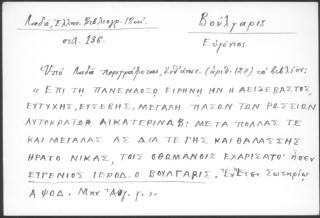 Λαδᾶ, Ἑλλην. Βιβλιογρ. 18ου
σελ. 136.
Βούλγαρις
Εὐγένιος
Ὑπὸ Λαδᾶ περιγράφεται, ἐνθ'ἀνωτ. (ἀριθ. 127) τὸ βιβλίον:
« ΕΠΙ ΤΗ ΠΑΝΕΝΔΟΞΩ ΕΙΡΗΝΗ ΗΝ Η ΑΕΙΣΕΒΑΣΤΟΣ,
ΕΥΤΥΧΗΣ, ΕΥΣΕΒΗΣ, ΜΕΓΑΛΗ ΠΑΣΩΝ ΤΩΝ ΡΩΣΣΙΩΝ
ΑΥΤΟΚΡΑΤΩΡ ΑΙΚΑΤΕΡΙΝΑ Β: ΜΕΤΑ ΠΟΛΛΑΣ ΤΕ
ΚΑΙ ΜΕΓΑΛΑΣ ΑΣ ΔΙΑ ΤΕ ΓΗΣ ΚΑΙ ΘΑΛΑΣΣΗΣ
ΗΡΑΤΟ ΝΙΚΑΣ, ΤΟΙΣ ΟΘΩΜΑΝΟΙΣ ΕΧΑΡΙΣΑΤΟ
ΕΥΓΕΝΙΟΣ ΙΕΡΟΔ. Ο ΒΟΥΛΓΑΡΙΣ. Σωτηρίας
ΑΨΟΔ.